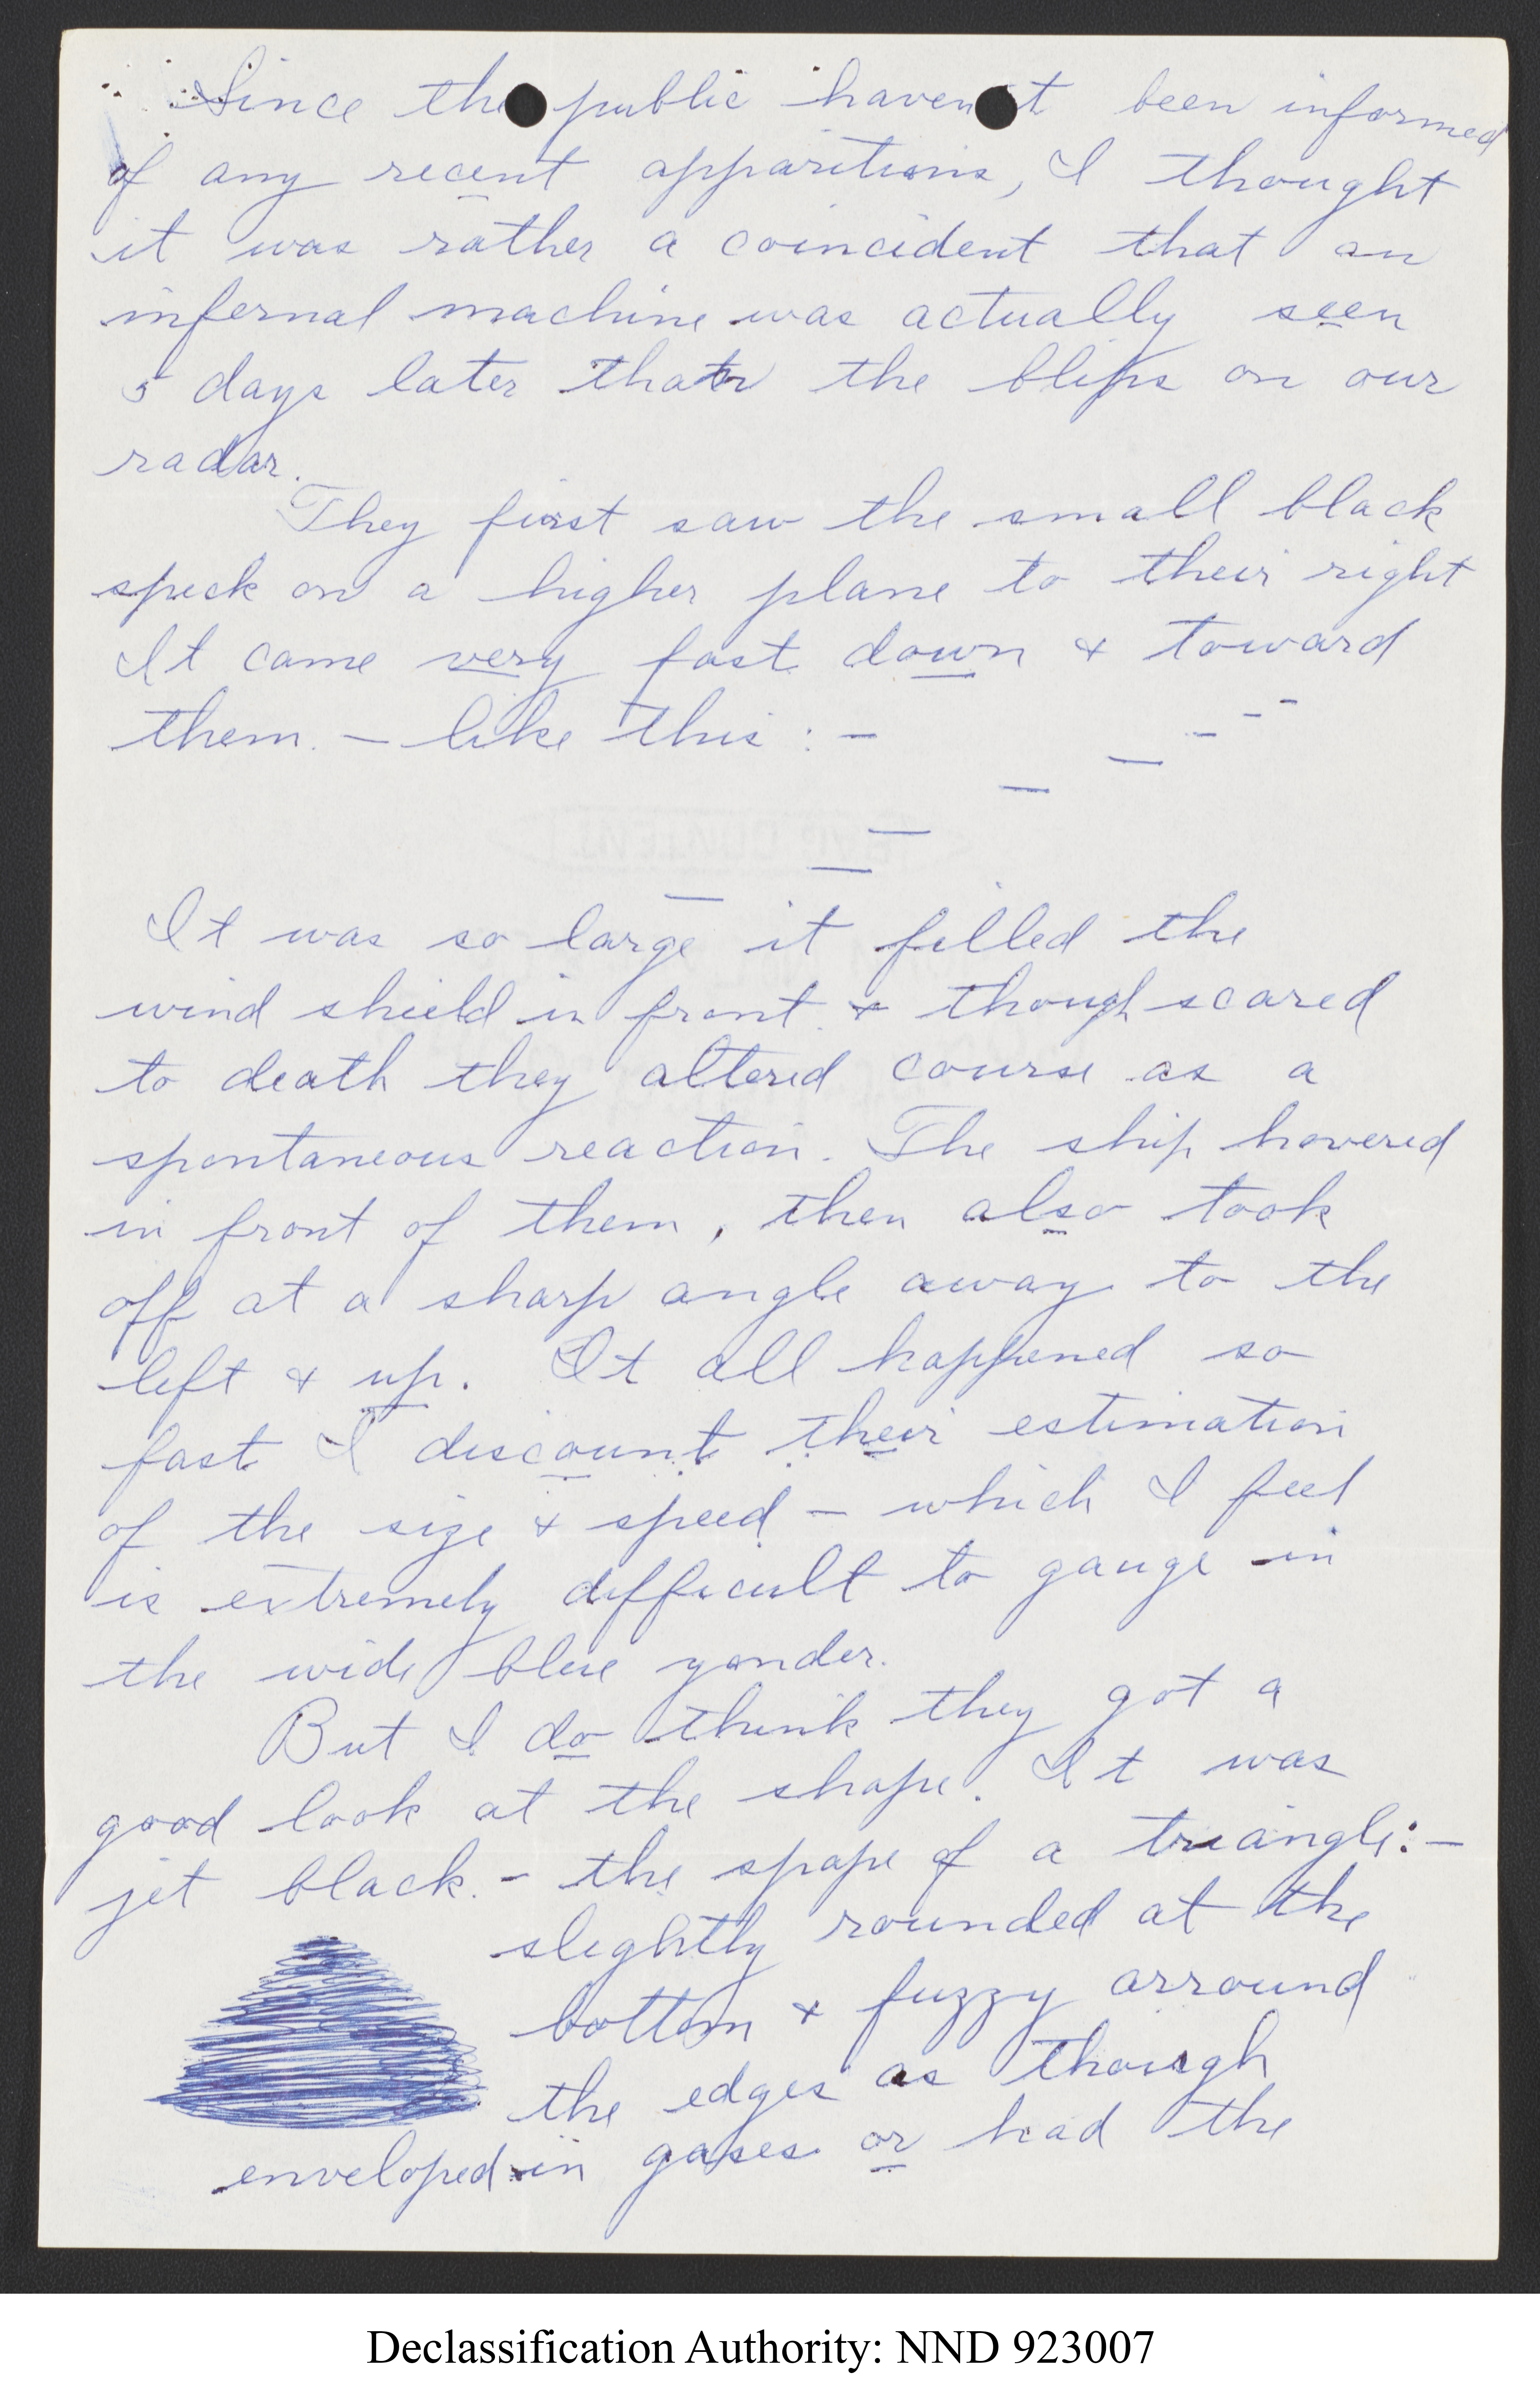 Since the public haven't been informed
of any recent apparitions, I thought
it was rather a coincident that an
infernal machine was actually seen
5 days later than the blips on our
radar.
They first saw the small black
speck on a higher plane to their right
It came very fast down & toward
them. – like this : –
It was so large it filled the
wind shield in front & though scared
to death they altered course as a
spontaneous reaction. The ship hovered
in front of them, then also took
off at a sharp angle away to the
left & up. It all happened so
fast I discount their estimation
of the size & speed – which I feel
is extremely difficult to gauge in
the wide blue yonder.
But I do think they got a
good look at the shape. It was
jet black. – the spape of a triangle: –
slightly rounded at the
bottom & fuzzy arround
the edges as though
enveloped in gases or had the
Declassification Authority: NND 923007